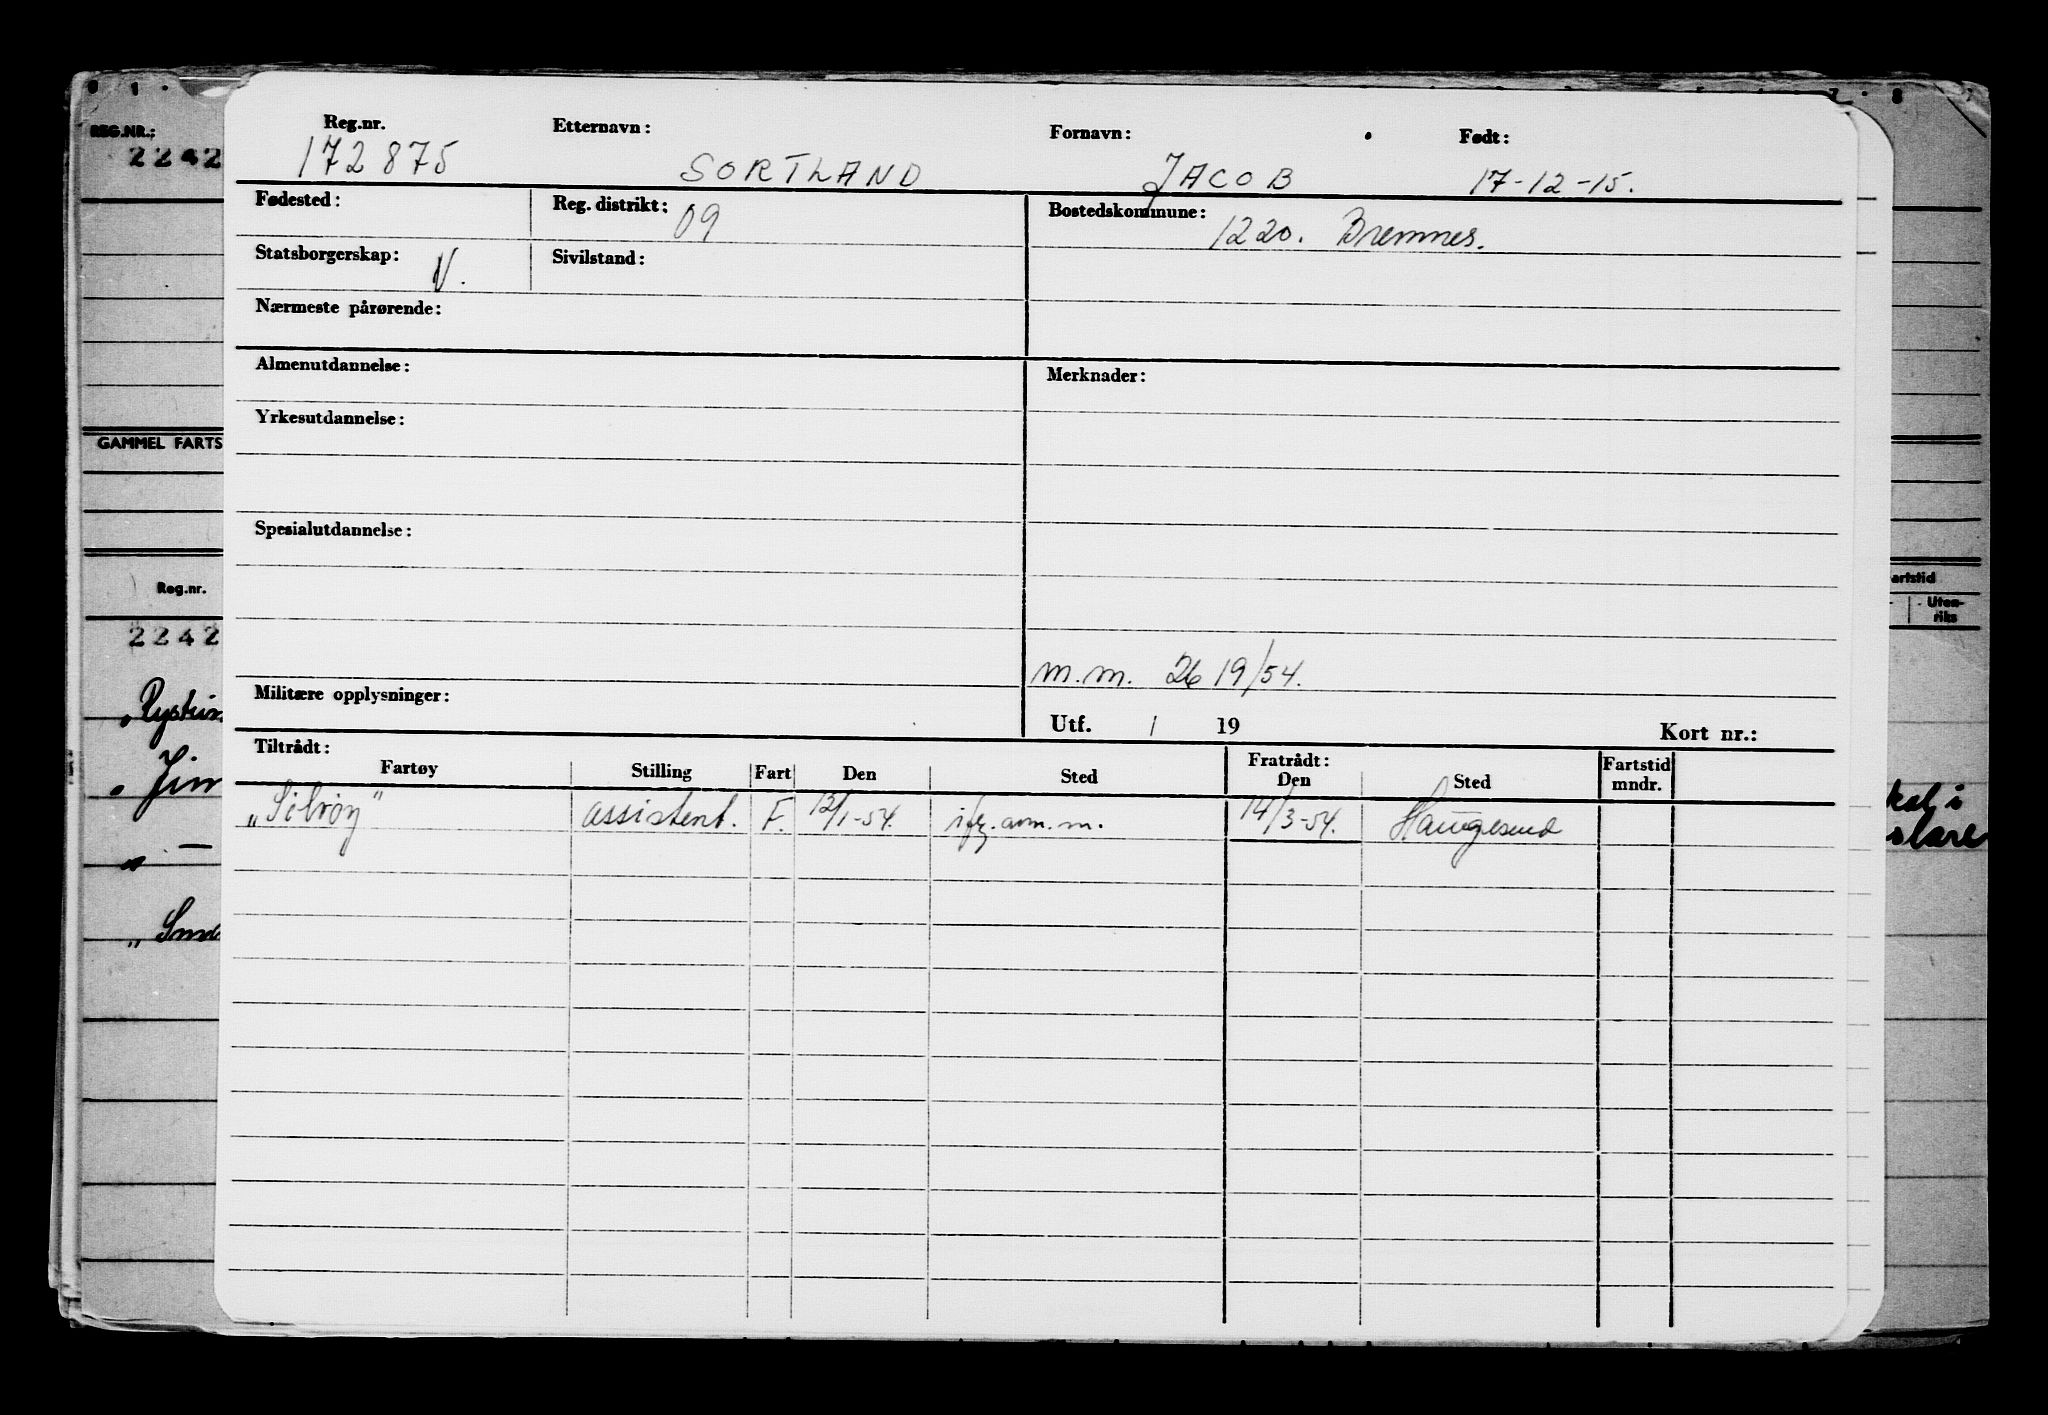 Reg.nr. Etternavn: Fornavn: Født:
172875 SORTLAND JACOB 17-12-15.
Fødested: Reg. distrikt: 09 Bostedskommune: 1220. Bremnes.
Statsborgerskap: N. Sivilstand:
Nærmeste pårørende:
Almenutdannelse: Merknader:
Yrkesutdannelse:
Spesialutdannelse:
m.m. 2619/54.
Militære opplysninger:
Utf. / 19 Kort nr.:
Tiltrådt: Fratrådt:
Fartøy Stilling Fart Den Sted Den Sted Fartstid mndr.
„Sølvøy" assistent. F. 12/1-54. 14/3-54. Haugesund
REG.NR.:
2242
GAMMEL FARTS
Reg.nr.
2242
artstid
Uten-
riks